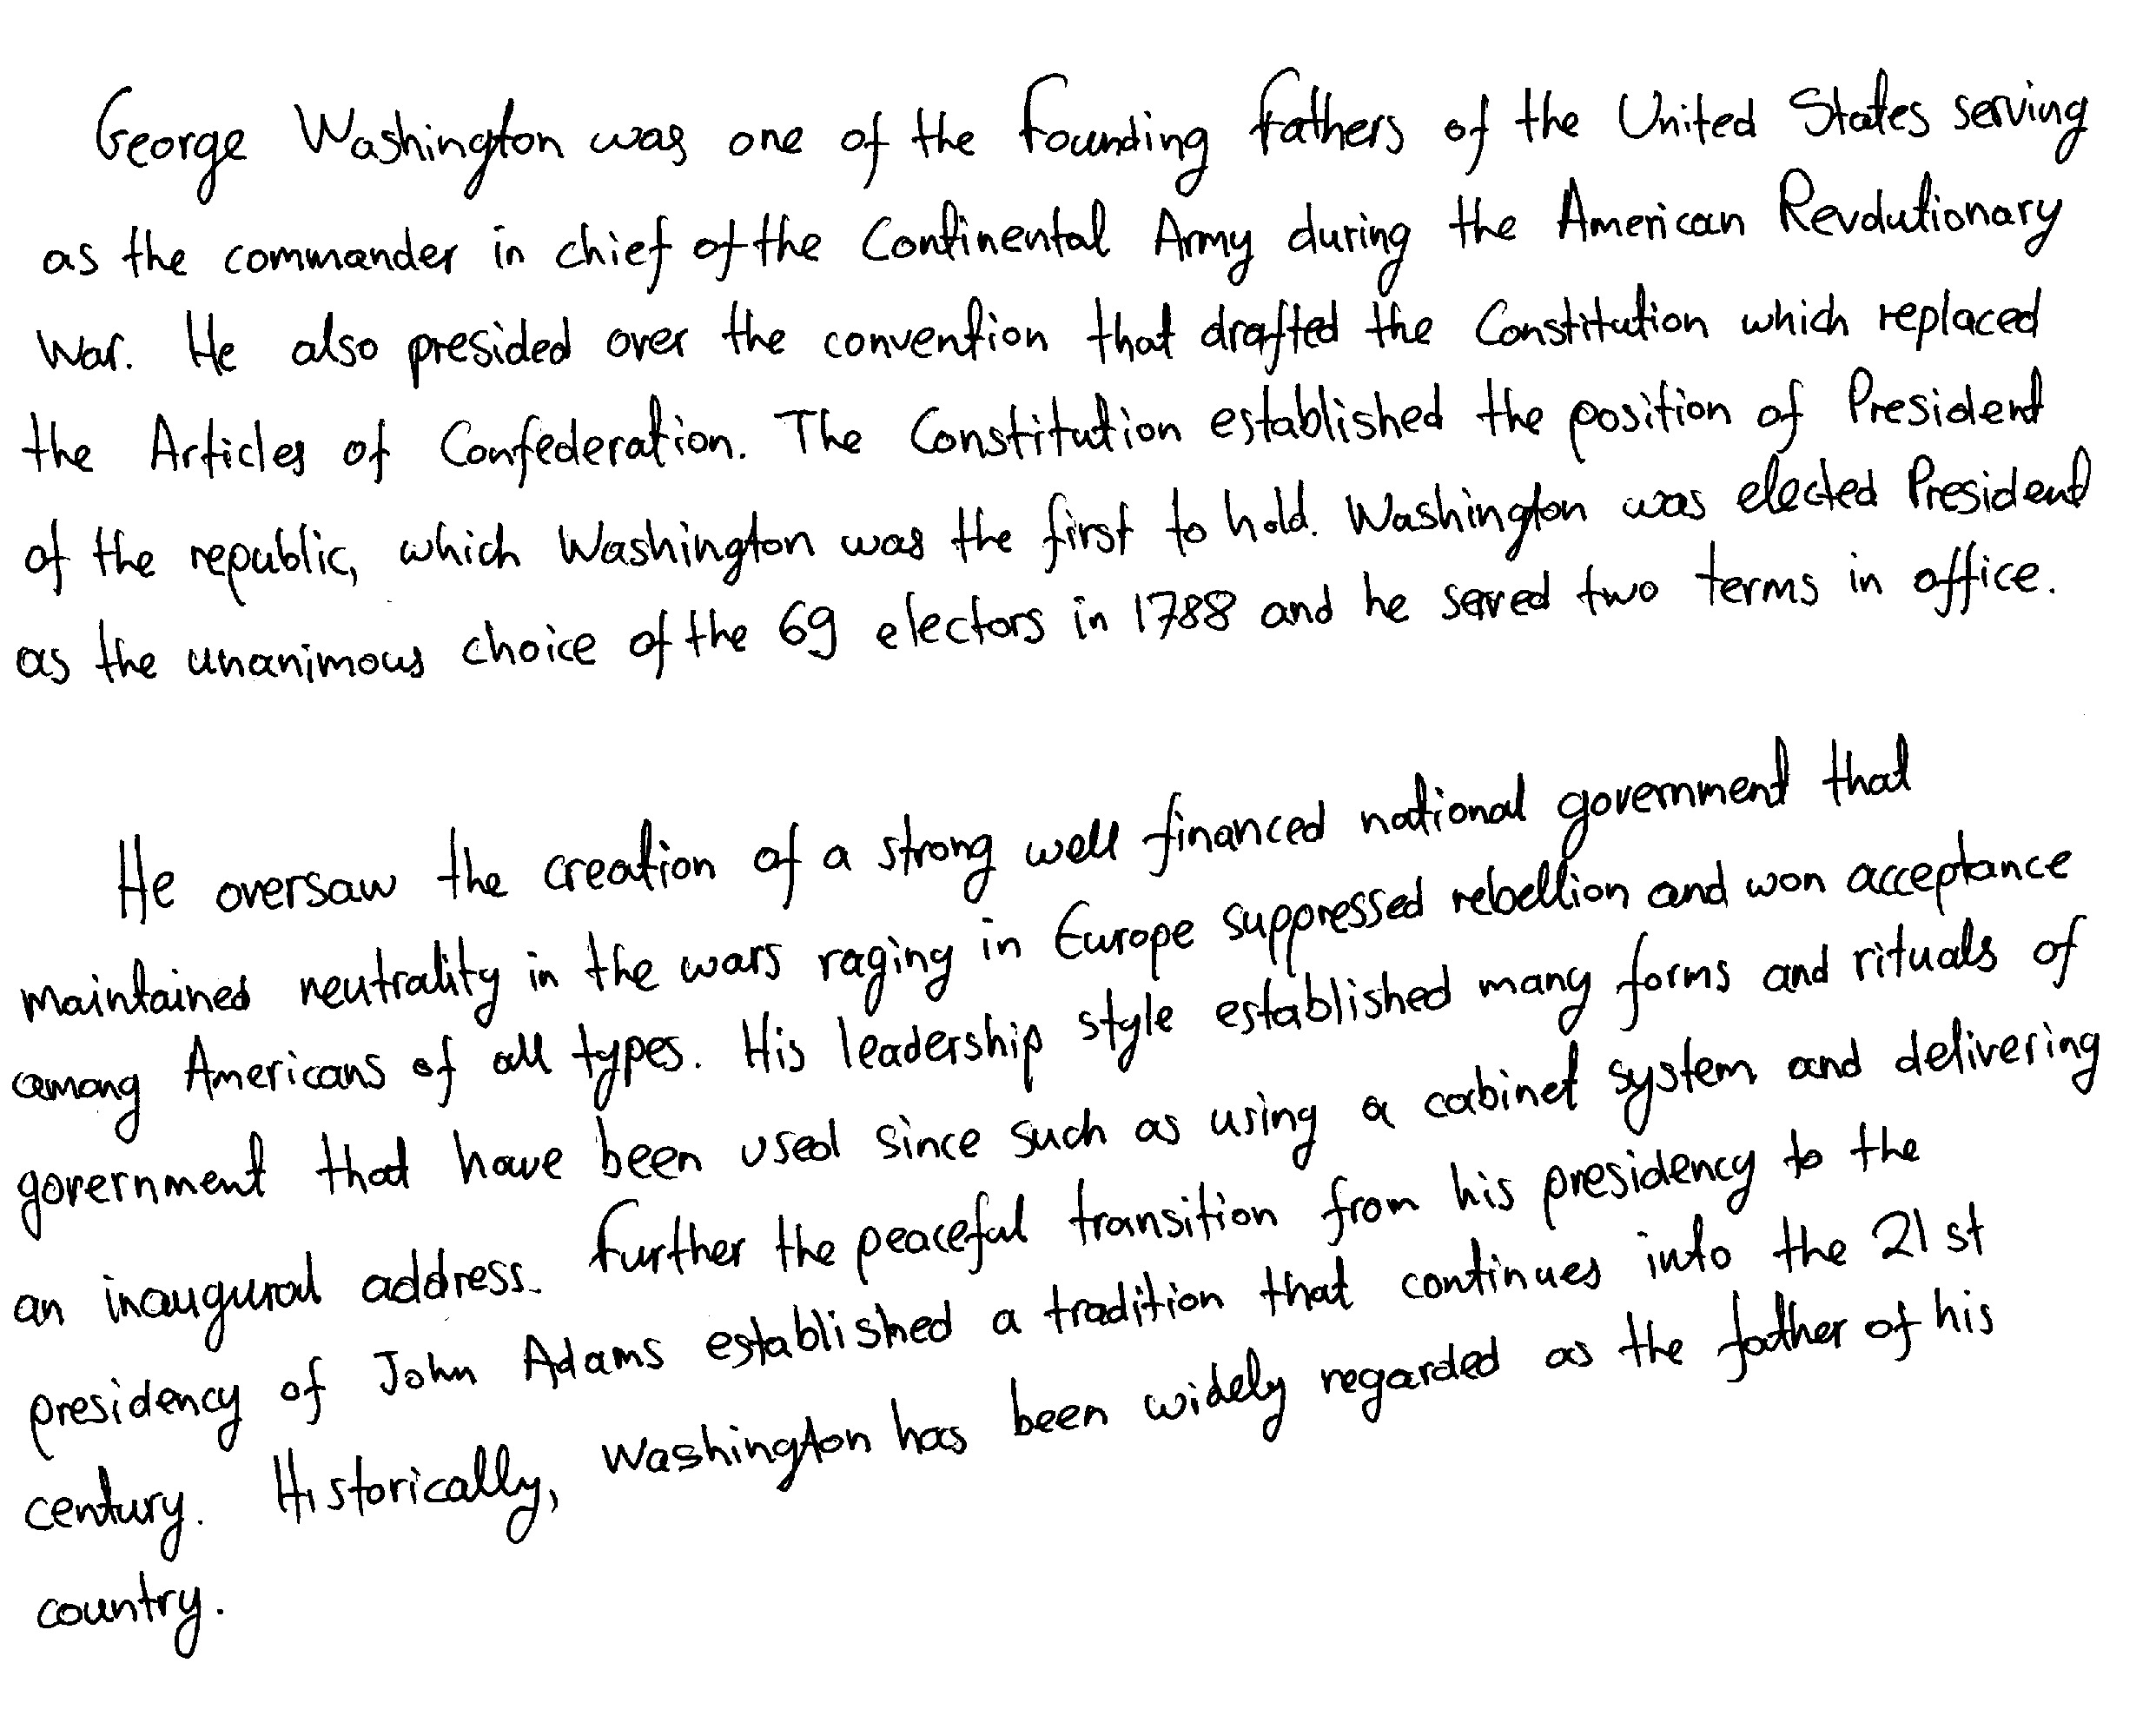 George Washington was one of the Founding Fathers of the United States serving
as the commander in chief of the Continental Army during the American Revolutionary
War. He also presided over the convention that drafted the Constitution which replaced
the Articles of Confederation. The Constitution established the position of President
of the republic, which Washington was the first to hold. Washington was elected President
as the unanimous choice of the 69 electors in 1788 and he served two terms in office.
He oversaw the creation of a strong well financed national government that
maintained neutrality in the wars raging in Europe suppressed rebellion and won acceptance
among Americans of all types. His leadership style established many forms and rituals of
government that have been used since such as using a cabinet system and delivering
an inaugural address. Further the peaceful transition from his presidency to the
presidency of John Adams established a tradition that continues into the 21st
century. Historically, Washington has been widely regarded as the father of his
country.